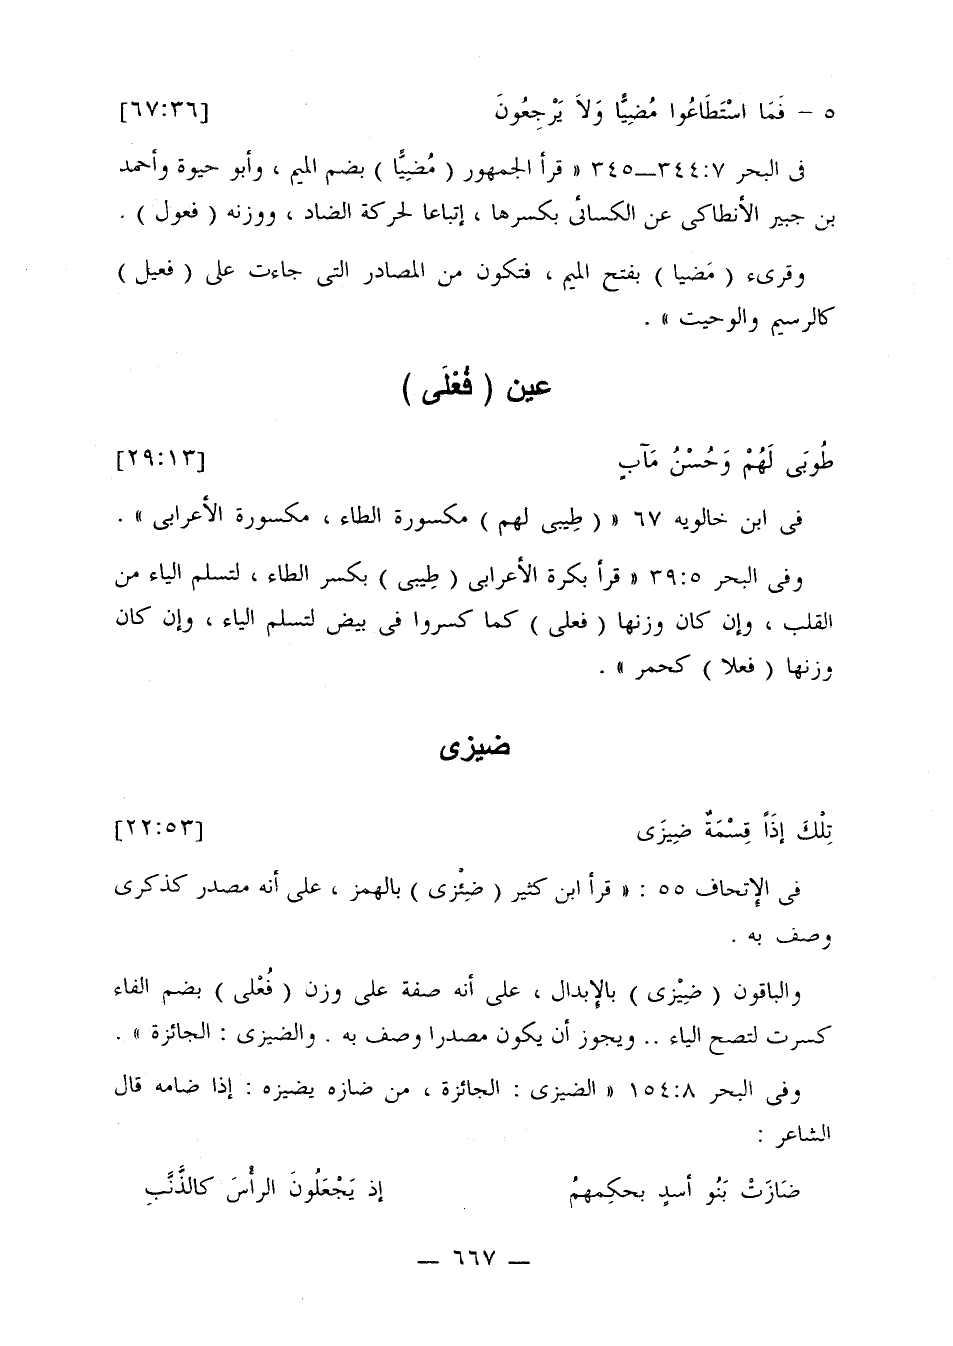 ٥ – فَمَا اسْتَطَاعُوا مُضِيًّا وَلاَ يَرْجِعُونَ [٦٧:٣٦]
فى البحر ٣٤٤:٧—٣٤٥ « قرأ الجمهور ( مُضِيًّا ) بضم الميم ، وأبو حيوة وأحمد
بن جبير الأنطاكى عن الكسائى بكسرها ، إتباعا لحركة الضاد ، ووزنه ( فعول ) .
وقرىء ( مَضيا ) بفتح الميم ، فتكون من المصادر التى جاءت على ( فعيل )
كالرسيم والوحيت » .
عين ( فُعْلَى )
طُوبَى لَهُمْ وَحُسْنُ مَآبٍ [٢٩:١٣]
فى ابن خالويه ٦٧ « ( طِيبى لهم ) مكسورة الطاء ، مكسورة الأعرابى » .
وفى البحر ٣٩:٥ « قرأ بكرة الأعرابى ( طِيبى ) بكسر الطاء ، لتسلم الياء من
القلب ، وإن كان وزنها ( فعلى ) كما كسروا فى بيض لتسلم الياء ، وإن كان
وزنها ( فعلا ) كحمر » .
ضيزى
تِلْكَ إِذَاً قِسْمَةٌ ضِيزَى [٢٢:٥٣]
فى الإتحاف ٥٥ : « قرأ ابن كثير ( ضِئْزى ) بالهمز ، على أنه مصدر كذكرى
وصف به .
والباقون ( ضِيْزى ) بالإبدال ، على أنه صفة على وزن ( فُعْلى ) بضم الفاء
كسرت لتصح الياء .. ويجوز أن يكون مصدرا وصف به . والضيزى : الجائزة » .
وفى البحر ١٥٤:٨ « الضيزى : الجائزة ، من ضازه يضيزه : إذا ضامه قال
الشاعر :
ضَازَتْ بَنُو أسدٍ بحكِمهمُ إذ يَجْعَلُونَ الرأْسَ كالذَّنَّبِ
— ٦٦٧ —